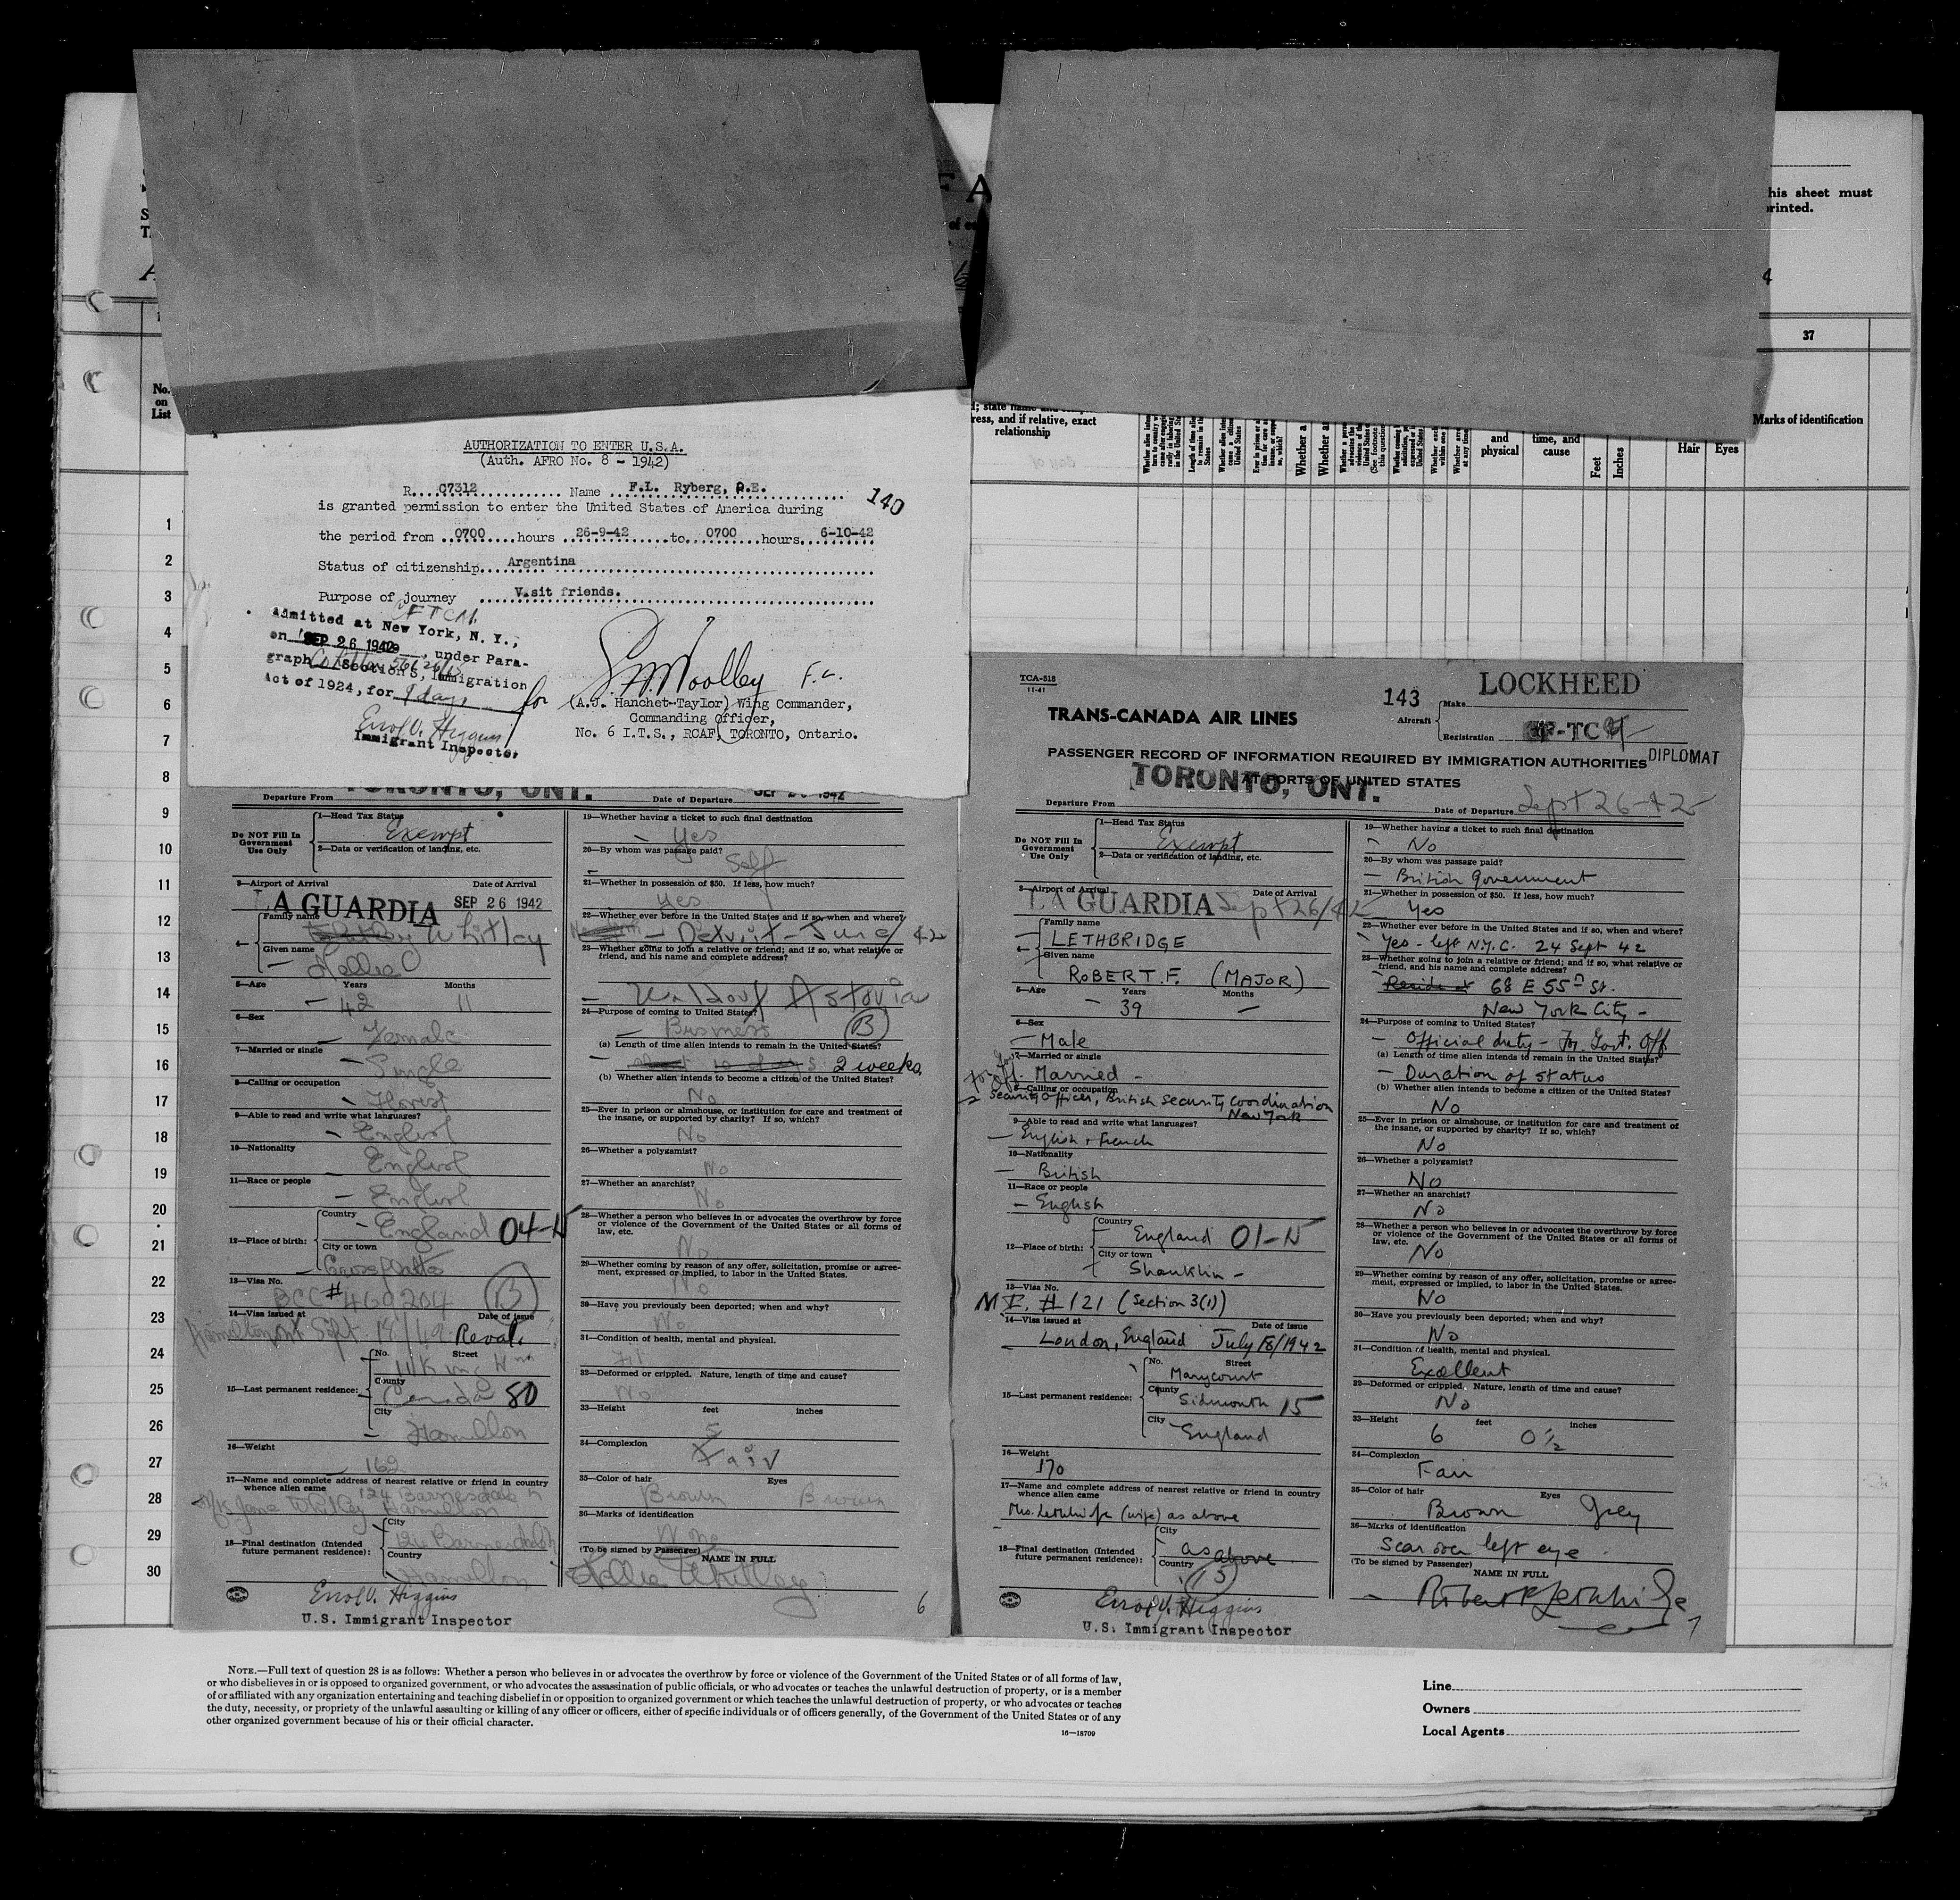 his sheet must
rinted.
37
No.
on
List
ress, and if relative, exact
relationship
and
physical
time, and
cause
Feet
Inches
Hair
Eyes
Marks of identification
AUTHORIZATION TO ENTER U.S.A.
(Auth. AFRO No. 8 - 1942)
R....C7312............ Name ....F.L. Ryberg,
140
is granted permission to enter the United States of America during
the period from ..0700....hours ..26-9-42.....to..0700...hours...6-10-42
Status of citizenship...Argentina
Purpose of journey ....Visit friends.
Admitted at New York, N. Y.,
on SEP 26 1942, under Para-
graph Section 3, Immigration
Act of 1924, for 9 days
for
Errol V. Higgins
Immigrant Inspector
Woolley
(A.J. Hanchet-Taylor) Wing Commander,
Commanding Officer,
No. 6 I.T.S., RCAF, TORONTO, Ontario.
1
2
3
4
5
6
7
8
9
10
11
12
13
14
15
16
17
18
19
20
21
22
23
24
25
26
27
28
29
30
TORONTO, ONT.
Departure From
Date of Departure SEP 26 1942
Do NOT Fill In
Government
Use Only
1—Head Tax Status
Exempt
2—Data or verification of landing, etc.
3—Airport of Arrival
Date of Arrival
LA GUARDIA SEP 26 1942
4—
Family name
Whitley
Given name
Nellie
5—Age Years Months
42 11
6—Sex
Female
7—Married or single
Single
8—Calling or occupation
Florist
9—Able to read and write what languages?
English
10—Nationality
English
11—Race or people
English
12—Place of birth:
Country
England 04-N
City or town
13—Visa No.
BCC # 460204 B
14—Visa issued at Date of issue
Hamilton Sept Reval.
15—Last permanent residence:
No. Street
County
Canada 80
City
Hamilton
16—Weight
162
17—Name and complete address of nearest relative or friend in country
whence alien came
Jane Whitley Hamilton
18—Final destination (Intended
future permanent residence):
City
Country
Hamilton
Errol V. Higgins
U.S. Immigrant Inspector
19—Whether having a ticket to such final destination
Yes
20—By whom was passage paid?
Self
21—Whether in possession of $50. If less, how much?
Yes
22—Whether ever before in the United States and if so, when and where?
Detroit - June / 42
23—Whether going to join a relative or friend; and if so, what relative or
friend, and his name and complete address?
Waldorf Astoria
24—Purpose of coming to United States?
Business B
(a) Length of time alien intends to remain in the United States?
2 weeks
(b) Whether alien intends to become a citizen of the United States?
No
25—Ever in prison or almshouse, or institution for care and treatment of
the insane, or supported by charity? If so, which?
No
26—Whether a polygamist?
No
27—Whether an anarchist?
No
28—Whether a person who believes in or advocates the overthrow by force
or violence of the Government of the United States or all forms of
law, etc.
No
29—Whether coming by reason of any offer, solicitation, promise or agree-
ment, expressed or implied, to labor in the United States.
No
30—Have you previously been deported; when and why?
No
31—Condition of health, mental and physical.
Fit
32—Deformed or crippled. Nature, length of time and cause?
No
33—Height feet inches
5
34—Complexion
Fair
35—Color of hair Eyes
Brown Brown
36—Marks of identification
None
(To be signed by Passenger) NAME IN FULL
Nellie Whitley
6
TCA-518
11-41
143
LOCKHEED
TRANS-CANADA AIR LINES
Aircraft
Make
Registration CF-TC
PASSENGER RECORD OF INFORMATION REQUIRED BY IMMIGRATION AUTHORITIES
DIPLOMAT
AT PORTS OF UNITED STATES
TORONTO, ONT.
Departure From
Date of Departure Sept 26-42
Do NOT Fill In
Government
Use Only
1—Head Tax Status
Exempt
2—Data or verification of landing, etc.
3—Airport of Arrival
Date of Arrival
LA GUARDIA Sept 26/42
4—
Family name
LETHBRIDGE
Given name
ROBERT. F. (MAJOR)
5—Age Years Months
39 —
6—Sex
Male
7—Married or single
Married -
8—Calling or occupation
Security Officer, British Security Coordination
New York
9—Able to read and write what languages?
English + French
10—Nationality
British
11—Race or people
English
12—Place of birth:
Country
England 01-N
City or town
Shanklin -
13—Visa No.
# 121 (Section 3(1))
14—Visa issued at Date of issue
London, England July 18/1942
15—Last permanent residence:
No. Street
Marycourt
County
Sidmouth 15
City
England
16—Weight
170
17—Name and complete address of nearest relative or friend in country
whence alien came
Mrs. Lethbridge (wife) as above
18—Final destination (Intended
future permanent residence):
City
as above
Country
15
Errol V. Higgins
U.S. Immigrant Inspector
19—Whether having a ticket to such final destination
No
20—By whom was passage paid?
British Government
21—Whether in possession of $50. If less, how much?
Yes
22—Whether ever before in the United States and if so, when and where?
Yes - left N.Y.C. 24 Sept 42
23—Whether going to join a relative or friend; and if so, what relative or
friend, and his name and complete address?
68 E 55th St.
New York City -
24—Purpose of coming to United States?
Official duty - For. Govt. Off.
(a) Length of time alien intends to remain in the United States?
Duration of status
(b) Whether alien intends to become a citizen of the United States?
No
25—Ever in prison or almshouse, or institution for care and treatment of
the insane, or supported by charity? If so, which?
No
26—Whether a polygamist?
No
27—Whether an anarchist?
No
28—Whether a person who believes in or advocates the overthrow by force
or violence of the Government of the United States or all forms of
law, etc.
No
29—Whether coming by reason of any offer, solicitation, promise or agree-
ment, expressed or implied, to labor in the United States.
No
30—Have you previously been deported; when and why?
No
31—Condition of health, mental and physical.
Excellent
32—Deformed or crippled. Nature, length of time and cause?
No
33—Height feet inches
6 0½
34—Complexion
Fair
35—Color of hair Eyes
Brown Grey
36—Marks of identification
Scar over left eye
(To be signed by Passenger) NAME IN FULL
Robert F Lethbridge
7
NOTE.—Full text of question 28 is as follows: Whether a person who believes in or advocates the overthrow by force or violence of the Government of the United States or of all forms of law,
or who disbelieves in or is opposed to organized government, or who advocates the assassination of public officials, or who advocates or teaches the unlawful destruction of property, or is a member
of or affiliated with any organization entertaining and teaching disbelief in or opposition to organized government or which teaches the unlawful destruction of property, or who advocates or teaches
the duty, necessity, or propriety of the unlawful assaulting or killing of any officer or officers, either of specific individuals or of officers generally, of the Government of the United States or of any
other organized government because of his or their official character.
16—18709
Line
Owners
Local Agents